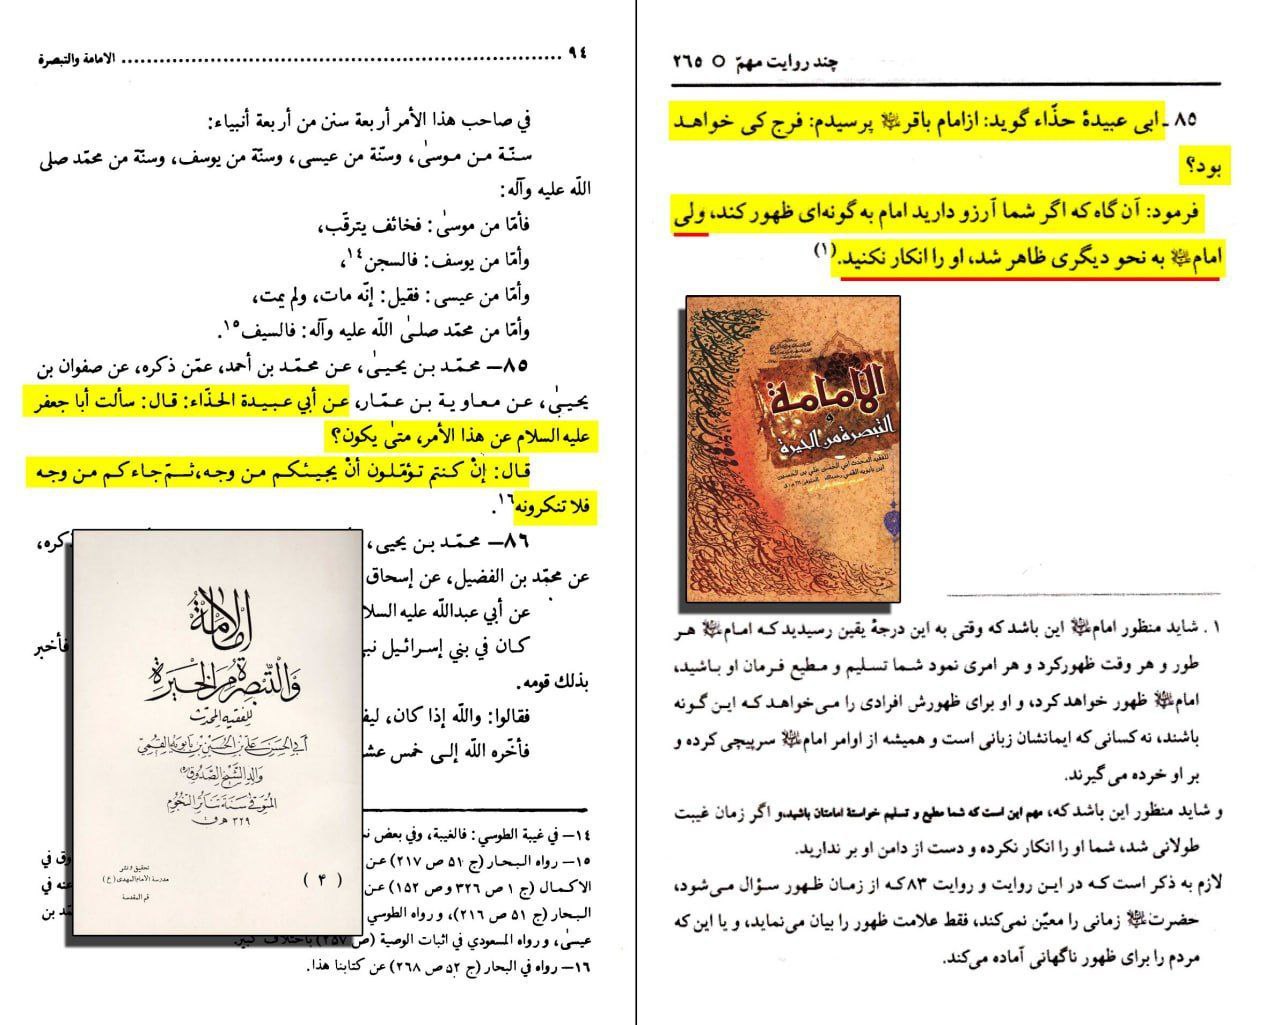 ٩٤ ........................ الامامة والتبصرة
في صاحب هذا الأمر أربعة سنن من أربعة أنبياء:
سنّة من موسىٰ، وسنّة من عيسى، وسنّة من يوسف، وسنّة من محمّد صلى
اللّه عليه وآله:
فأمّا من موسىٰ: فخائف يترقّب،
وأمّا من يوسف: فالسجن١٤،
وأمّا من عيسى: فقيل: إنّه مات، ولم يمت،
وأمّا من محمّد صلىٰ اللّه عليه وآله: فالسيف١٥.
٨٥– محمّد بن يحيىٰ، عن محمّد بن أحمد، عمّن ذكره، عن صفوان بن
يحيىٰ، عن معاوية بن عمّار، عن أبي عبيدة الحذّاء: قال: سألت أبا جعفر
عليه السلام عن هذا الأمر، متىٰ يكون؟
قال: إنْ كنتم تؤمّلون أنْ يجيئكم من وجه، ثمّ جاءكم من وجه
فلا تنكرونه١٦.
٨٦– محمّد بن يحيى، ... كره،
عن محمّد بن الفضيل، عن إسحاق
عن أبي عبداللّه عليه السلا
كان في بني إسرائيل نبي ... فأخبر
بذلك قومه.
فقالوا: واللّه إذا كان، ليف
فأخّره اللّه إلى خمس عش
١٤– في غيبة الطوسي: فالغيبة، وفي بعض نس
١٥– رواه البحار (ج ٥١ ص ٢١٧) عن ... وق في
الاكمال (ج ١ ص ٣٢٦ و ص ١٥٢) عن ... عنه في
البحار (ج ٥١ ص ٢١٦)، و رواه الطوسي ... مّد بن
عيسىٰ، و رواه المسعودي في اثبات الوصية (ص ٢٥٧) باختلاف كبير.
١٦– رواه في البحار (ج ٥٢ ص ٢٦٨) عن كتابنا هذا.
الامامة
والتبصرة من الحيرة
للفقيه المحدث
أبي الحسن علي بن الحسين بن بابويه القمي
والد الشيخ الصدوق
المتوفى سنة تناثر النجوم
٣٢٩ هـ ق
تحقيق و نشر
مدرسة الامام المهدي (ع)
قم المقدسة
( ٤ )
چند روایت مهمّ ○ ٢٦٥
٨٥ ـ ابی عبیدۀ حذّاء گوید: ازامام باقر پرسیدم: فرج کی خواهد
بود؟
فرمود: آن گاه که اگر شما آرزو دارید امام به گونه‌ای ظهور کند، ولی
امام به نحو دیگری ظاهر شد، او را انکار نکنید.(١)
الإمامة
و
التبصرة من الحيرة
للفقيه المحدث أبي الحسن علي بن الحسين
١ . شاید منظور امام این باشد که وقتی به این درجۀ یقین رسیدید که امام هر
طور و هر وقت ظهورکرد و هر امری نمود شما تسلیم و مطیع فرمان او باشید،
امام ظهور خواهد کرد، و او برای ظهورش افرادی را می‌خواهد که این گونه
باشند، نه کسانی که ایمانشان زبانی است و همیشه از اوامر امام سرپیچی کرده و
بر او خرده می‌گیرند.
و شاید منظور این باشد که، مهم این است که شما مطیع و تسلیم خواستۀ امامتان باشید، و اگر زمان غیبت
طولانی شد، شما او را انکار نکرده و دست از دامن او بر ندارید.
لازم به ذکر است که در این روایت و روایت ٨٣ که از زمان ظهور سؤال می‌شود،
حضرت زمانی را معیّن نمی‌کند، فقط علامت ظهور را بیان می‌نماید، و یا این که
مردم را برای ظهور ناگهانی آماده می‌کند.